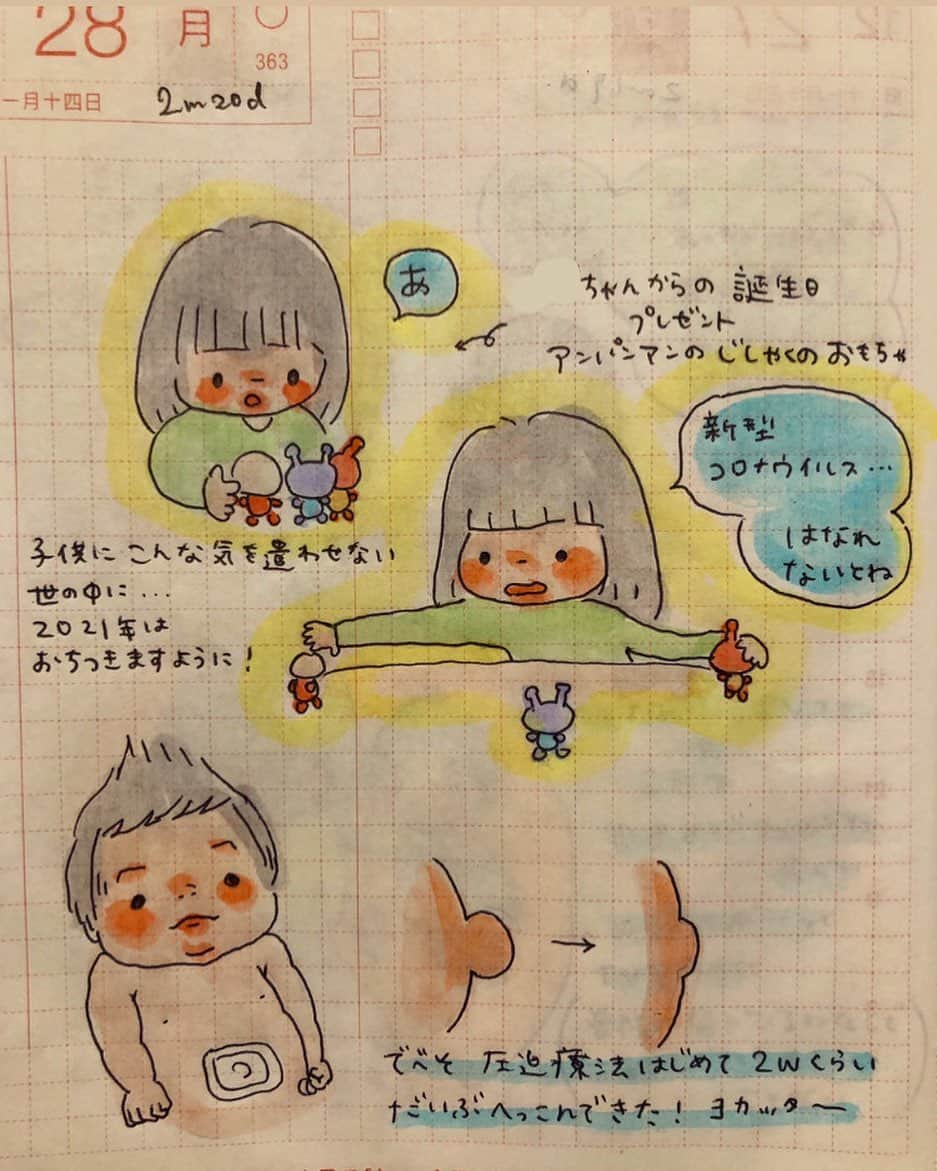 28 月
363
一月十四日 2m20d
あ
ちゃんからの 誕生日
プレゼント
アンパンマンの じしゃくの おもちゃ
新型
コロナウイルス…
はなれ
ないとね
子供に こんな 気を遣わせない
世の中に…
2021年は
おちつきますように!
でべそ 圧迫療法はじめて 2wくらい
だいぶへっこんできた! ヨカッター